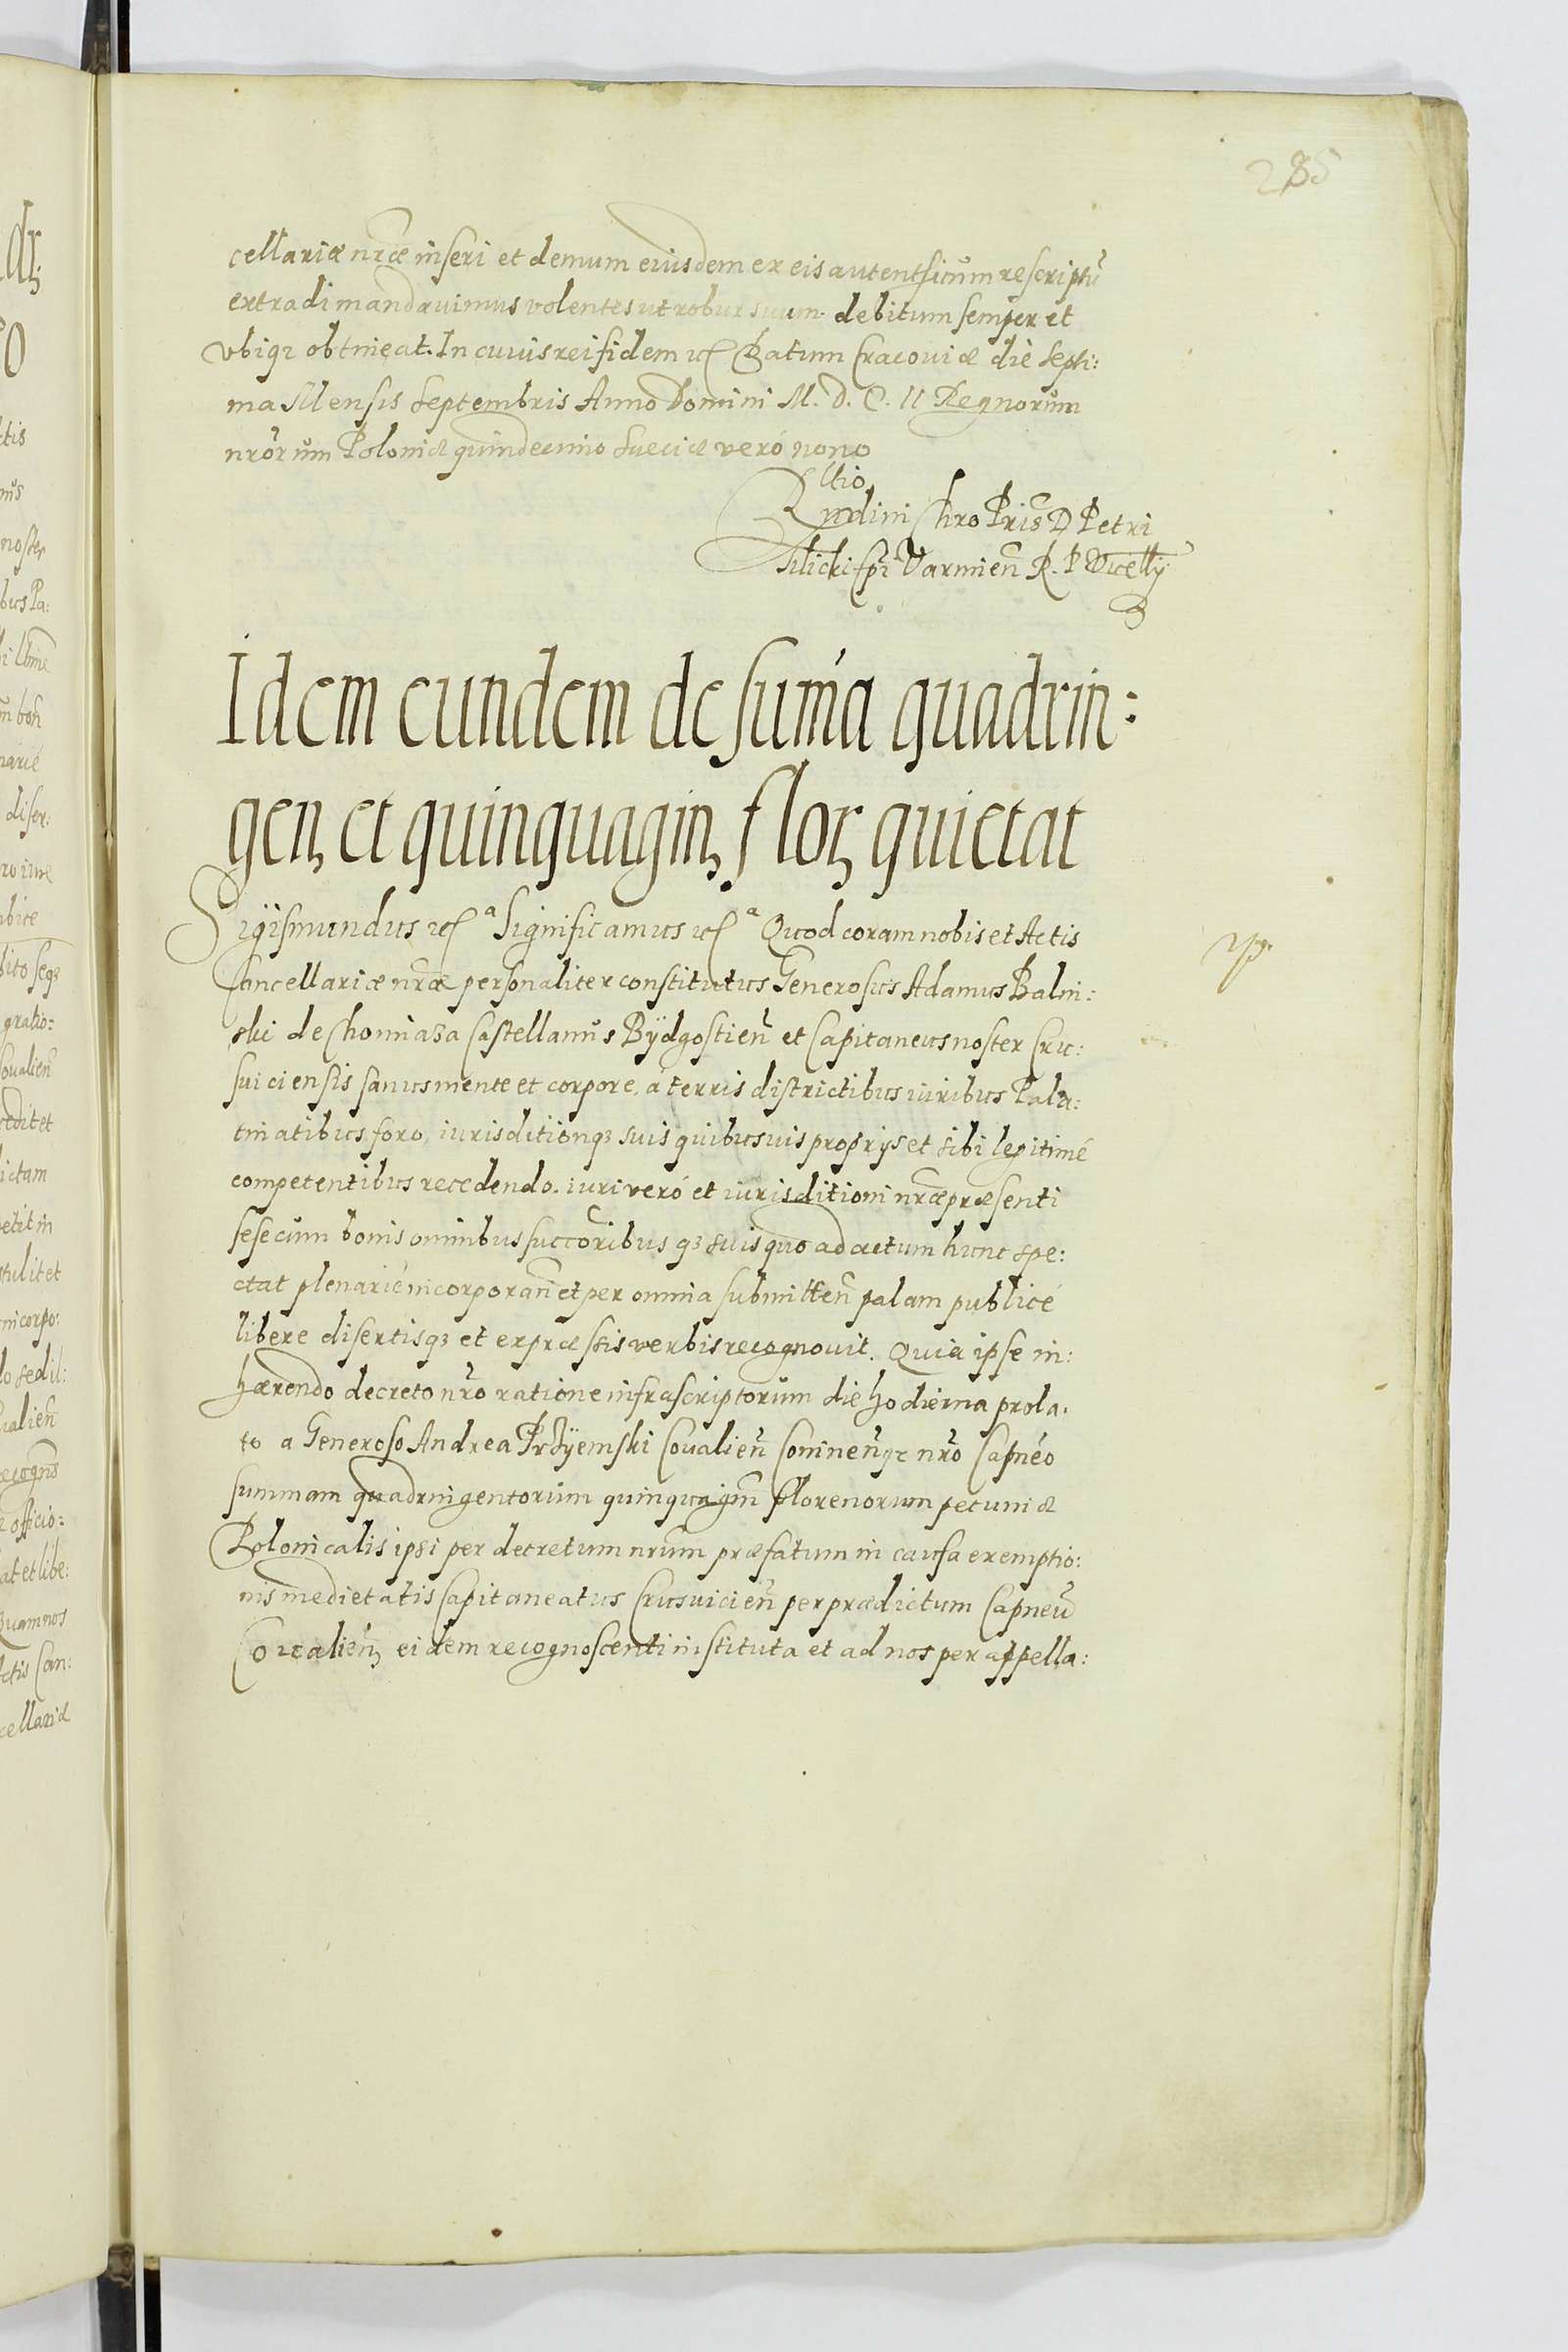 285
cellariæ nr̃æ inseri et demum eiusdem ex eis autenthicum rescriptũ
extradi mandauimus volentes ut robur suum debitum semper et
vbiqȝ obtineat. In cuius rei fidem etc Datum Cracouiæ die septi:
ma Mensis Septembris Anno Domini M. D. C. II Regnorum
nrõrum Poloniæ quindecimo Sueciæ verò nono
Rndini Chro Pris D Petri
Tilicki Epi Varmien̄ R. P Vicellÿ
Idem eundem de sum̃a quadrin:
gen, et quinquagin, flor, quietat
Sigismundus etc ᵃ Significamus etc ᵃ Quod coram nobis et Actis
Cancellariæ nr̃æ personaliter constitutus Generosus Adamus Balin:
ski de Chomiaza Castellanus Bÿdgostien̄ et Capitaneus noster Crus:
suiciensis sanus mente et corpore, á terris districtibus iuribus Pala:
tinatibus foro, iurisditionqȝ suis quibusuis proprijs et sibi legitimé
competentibus recedendo. iuri veró et iurisditioni nr̃æ præsenti
sese cum bonis omnibus succ̃oribus qȝ suis quo ad actum hunc spe:
ctat plenarié incorporan̄ et per omnia submitten̄ palam publicé
libere disertisqȝ et expræssis verbis recognouit. Quia ipse in:
hærendo decreto nr̃o ratione infrascriptorum die hodierna prola.
to a Generoso Andrea Przÿemski Coualien̄ Coninen̄qȝ nr̃o Capnéo
summam quadringentorum quinquagin̄ florenorum pecuniæ
Polonicalis ipsi per decretum nrũm præfatum in causa exemptio:
nis medietatis Capitaneatus Crusuicien̄ per prædictum Capneũ
Coualien, eidem recognoscenti instituta et ad nos per appella: